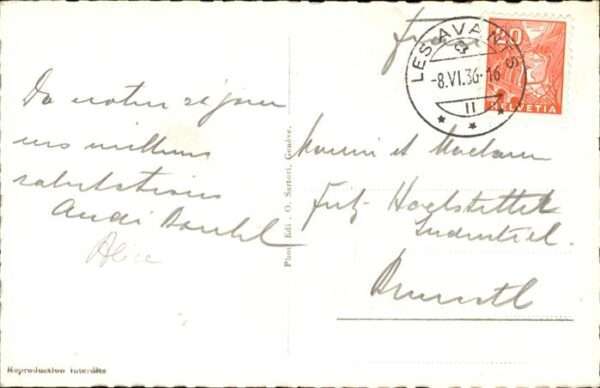 De notre séjour
nos meilleures
salutations
André
Alice
LES AVANTS
-8.VI.36-16
II
20
HELVETIA
Monsieur et Madame
Fritz Hofstettler
Industriel.
Phot. Edit - O. Sartori, Genève.
Reproduction interdite